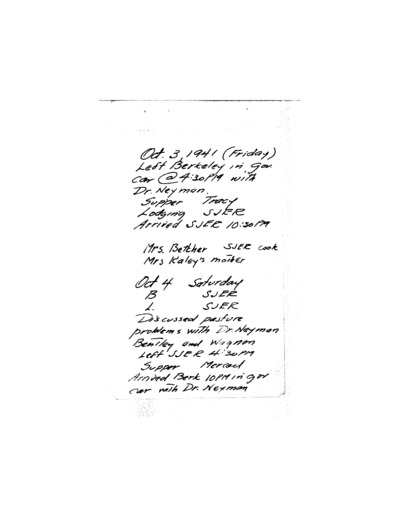 Oct. 3, 1941 (Friday)
Left Berkeley in Gov.
car @ 4:30 PM with
Dr. Neyman.
Supper Tracy
Lodging SJER
Arrived SJER 10:30 PM
Mrs. Bettcher SJER cook
Mrs Kaley's mother
Oct 4 Saturday
B SJER
L. SJER
Discussed pasture
problems with Dr. Neyman
Bentley and Wagnon
Left SJER 4:30 PM
Supper Merced
Arrived Berk 10 PM in gov
car with Dr. Neyman